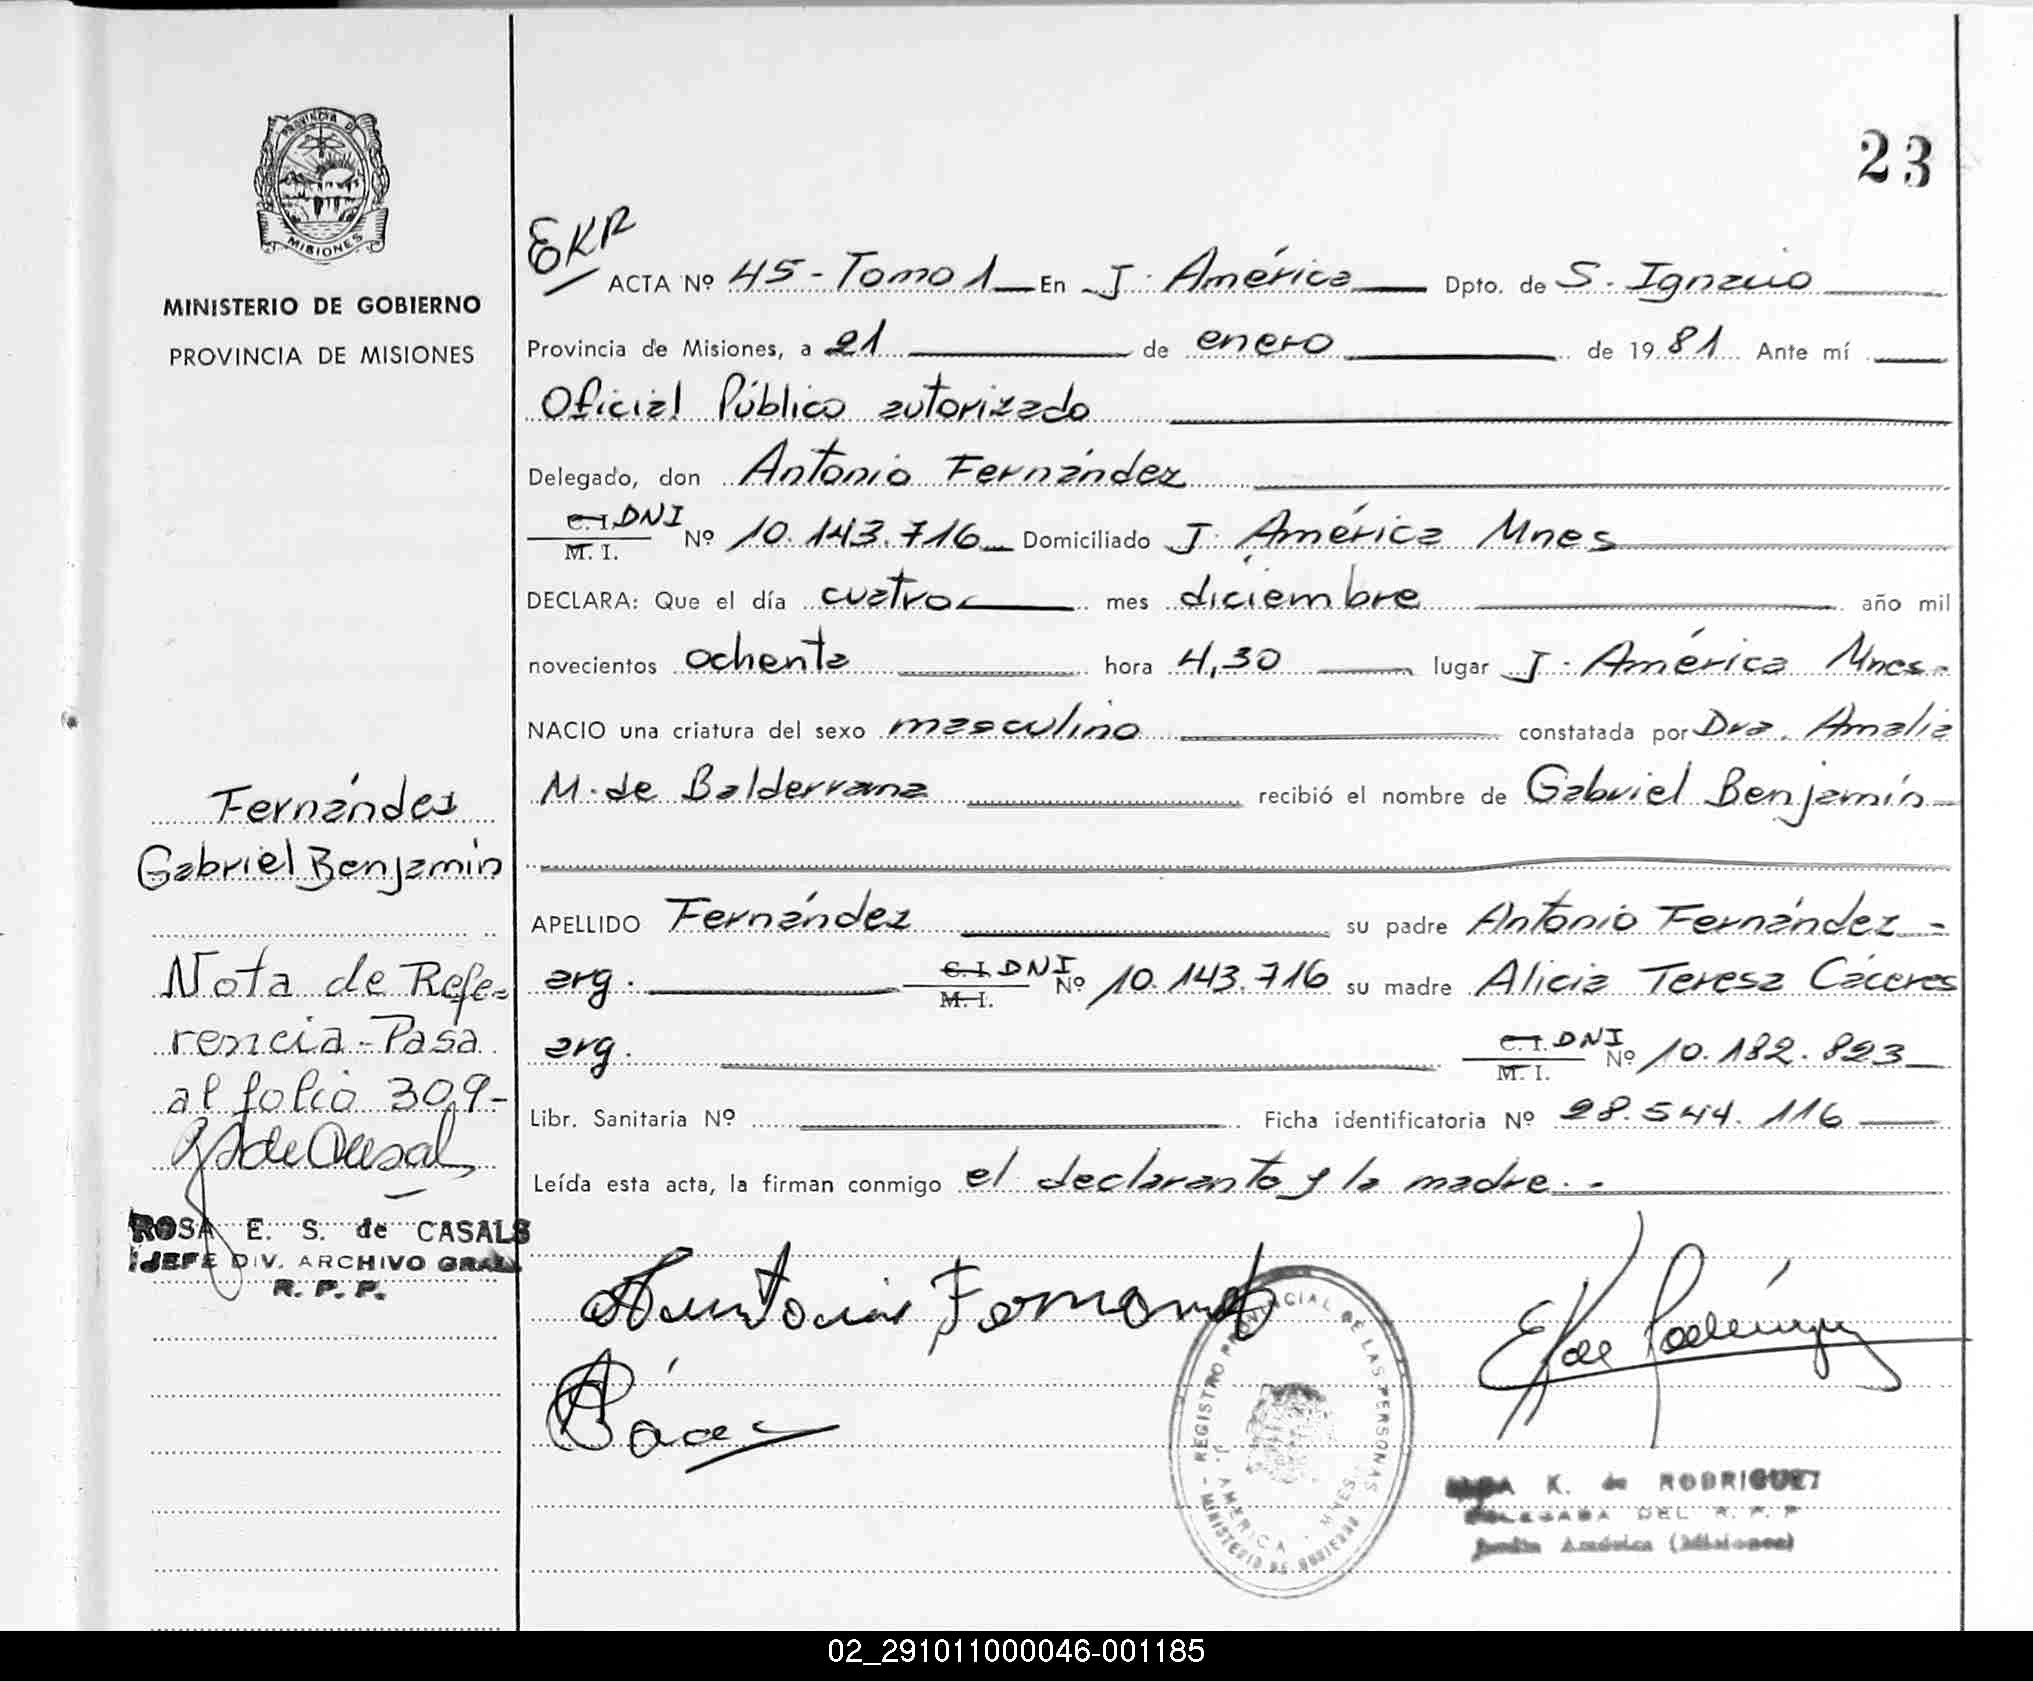 23
PROVINCIA DE
MISIONES
MINISTERIO DE GOBIERNO
PROVINCIA DE MISIONES
EKR
ACTA Nº 45 - Tomo 1 En J. América Dpto. de S. Ignacio
Provincia de Misiones, a 21 de enero de 1981 Ante mí
Oficial Público autorizado
Delegado, don Antonio Fernández
C. I. DNI
M. I. Nº 10.143.716 Domiciliado J. América Mnes
DECLARA: Que el día cuatro mes diciembre año mil
novecientos ochenta hora 4,30 lugar J. América Mnes.
NACIO una criatura del sexo masculino constatada por Dra. Amalia
M. de Balderrama recibió el nombre de Gabriel Benjamín
APELLIDO Fernández su padre Antonio Fernández
arg. C. I. DNI
M. I. Nº 10.143.716 su madre Alicia Teresa Cáceres
arg. C. I. DNI
M. I. Nº 10.182.823
Libr. Sanitaria Nº Ficha identificatoria Nº 28.544.116
Leída esta acta, la firman conmigo el declarante y la madre.
Fernández
Gabriel Benjamín
Nota de Refe-
rencia - Pasa
al folio 309-
ROSA E. S. de CASALS
JEFE DIV. ARCHIVO GRAL
R. P. P.
REGISTRO PROVINCIAL DE LAS PERSONAS
J. AMERICA - MNES.
MINISTERIO DE GOBIERNO
K. de RODRIGUEZ
DELEGADA DEL R. P. P
Jardín América (Misiones)
02_291011000046-001185